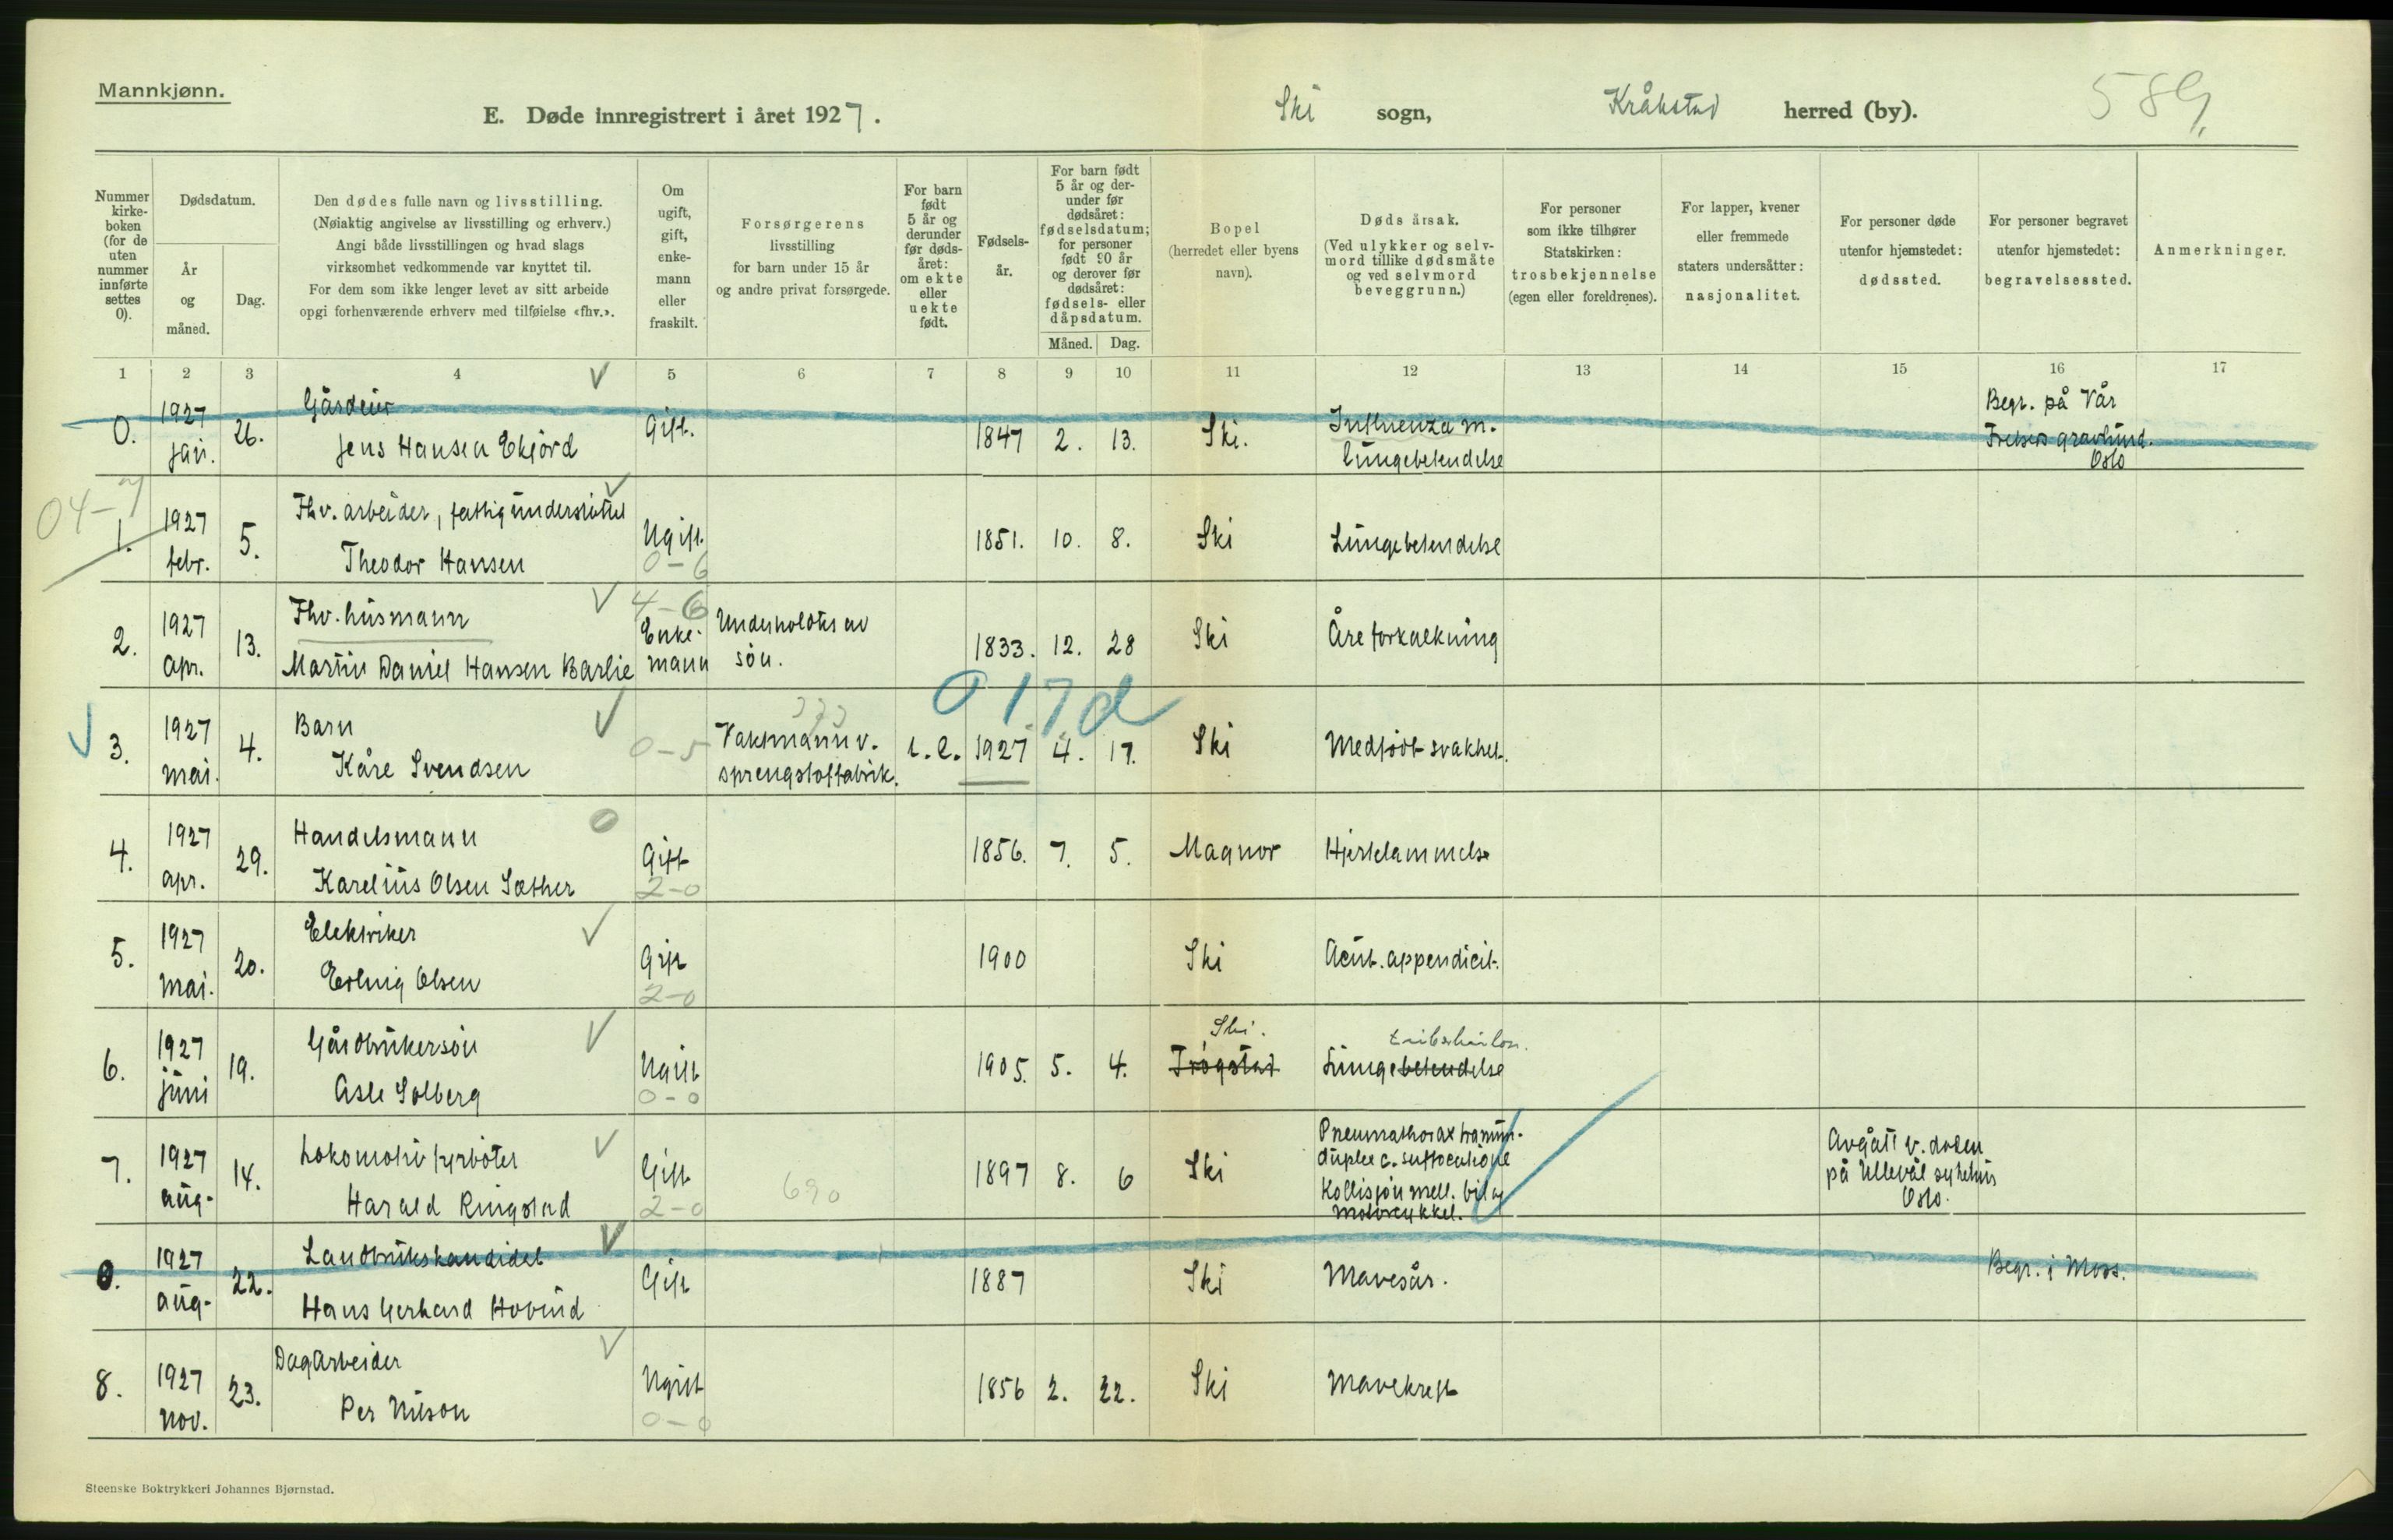 Mannkjønn.
E. Døde innregistrert i året 1927.
Ski sogn,
Kråkstad herred (by).
589.
Nummer kirke-boken (for de uten nummer innførte settes 0).
Dødsdatum.
År og måned.
Dag.
Den dødes fulle navn og livsstilling.
(Nøiaktig angivelse av livsstilling og erhverv.)
Angi både livsstillingen og hvad slags
virksomhet vedkommende var knyttet til.
For dem som ikke lenger levet av sitt arbeide
opgi forhenværende erhverv med tilføielse «fhv.».
Om ugift, gift, enke-mann eller fraskilt.
Forsørgerens
livsstilling
for barn under 15 år
og andre privat forsørgede.
For barn født 5 år og derunder før døds-året: om ekte eller uekte født.
Fødsels-år.
For barn født 5 år og der-under før dødsåret: fødselsdatum; for personer født 90 år og derover før dødsåret: fødsels- eller dåpsdatum.
Måned.
Dag.
Bopel
(herredet eller byens navn).
Døds årsak.
(Ved ulykker og selv-mord tillike dødsmåte og ved selvmord beveggrunn.)
For personer som ikke tilhører Statskirken: trosbekjennelse (egen eller foreldrenes).
For lapper, kvener eller fremmede staters undersåtter: nasjonalitet.
For personer døde utenfor hjemstedet: dødssted.
For personer begravet utenfor hjemstedet: begravelsessted.
Anmerkninger.
1 2 3 4 5 6 7 8 9 10 11 12 13 14 15 16 17
0. 1927 jan. 26. Gårdeier Jens Hansen Ekjörd Gift. 1847 2. 13. Ski. Influenza m. lungebetendelse Begr. på Vår Frelsers gravlund. Oslo
04-
1. 1927 febr. 5. Fhv. arbeider, fattigunderstöttet Theodor Hansen Ugift 0-6 1851. 10. 8. Ski Lungebetendelse
2. 1927 apr. 13. Fhv. husmann Martin Daniel Hansen Barlie 4-6 Enke-mann Underholdtes av sön. 1833. 12. 28 Ski Åreforkalkning
0 17 d
3. 1927 mai. 4. Barn Kåre Svendsen 0-5 Vaktmann v. sprengstoffabrik. e. 1927 4. 17. Ski Medfödt svakhet.
4. 1927 apr. 29. Handelsmann Karelius Olsen Sæther Gift 2-0 1856. 7. 5. Magnor Hjertelammelse
5. 1927 mai. 20. Elektriker Erling Olsen Gift 2-0 1900 Ski Acut. appendicit.
6. 1927 juni 19. Gårdbrukersön Asle Solberg Ugift 0-0 1905. 5. 4. Ski. Trögstad Lungebetendelse
7. 1927 aug. 14. Lokomotivfyrböter Harald Ringstad Gift 2-0 690 1897 8. 6 Ski Pneumathorax traum. duplex c. suffocatione Kollisjön mell. bil og motorcykkel. Avgått v. döden på Ullevål sykehus Oslo.
0. 1927 aug. 22. Landbrukskandidat Hans Gerhard Hovind Gift 1887 Ski Mavesår. Begr. i Moss.
8. 1927 nov. 23. Dagarbeider Per Nilson Ugift 0-0 1856 2. 22. Ski Mavekreft
Steenske Boktrykkeri Johannes Bjørnstad.